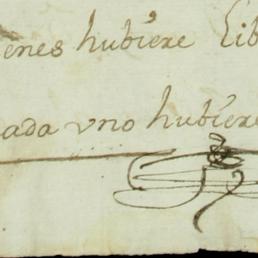 enes hubiere Lib
ada vno hubiere